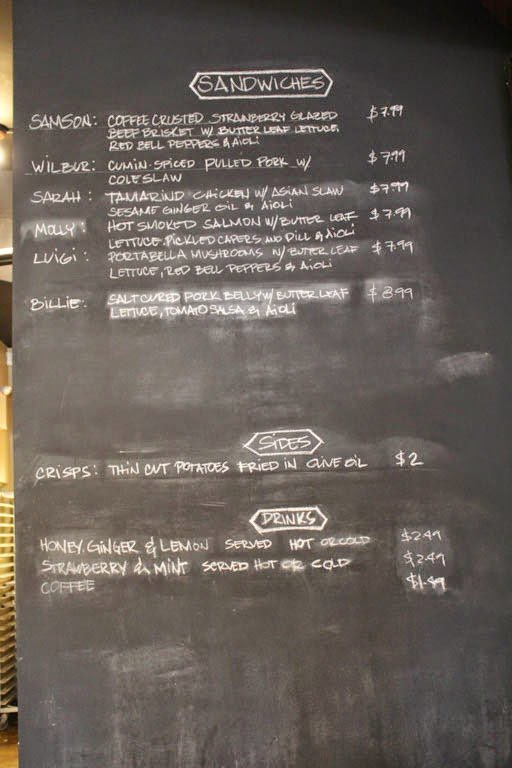 SANDWICHES
SAMSON: COFFEE CRUSTED STRAWBERRY GLAZED $7.99
BEEF BRISKET W/ BUTTER LEAF LETTUCE,
RED BELL PEPPERS & AIOLI
WILBUR: CUMIN-SPICED PULLED PORK W/ $7.99
COLESLAW
SARAH: TAMARIND CHICKEN W/ ASIAN SLAW $7.99
SESAME GINGER OIL & AIOLI
MOLLY: HOT SMOKED SALMON W/ BUTTER LEAF $7.99
LETTUCE, PICKLED CAPERS AND DILL & AIOLI
LUIGI: PORTABELLA MUSHROOMS W/ BUTTER LEAF $7.99
LETTUCE, RED BELL PEPPERS & AIOLI
BILLIE: SALT CURED PORK BELLY W/ BUTTER LEAF $8.99
LETTUCE, TOMATO SALSA & AIOLI
SIDES
CRISPS: THIN CUT POTATOES FRIED IN OLIVE OIL $2
DRINKS
HONEY, GINGER & LEMON SERVED HOT OR COLD $2.49
STRAWBERRY & MINT SERVED HOT OR COLD $2.49
COFFEE $1.49